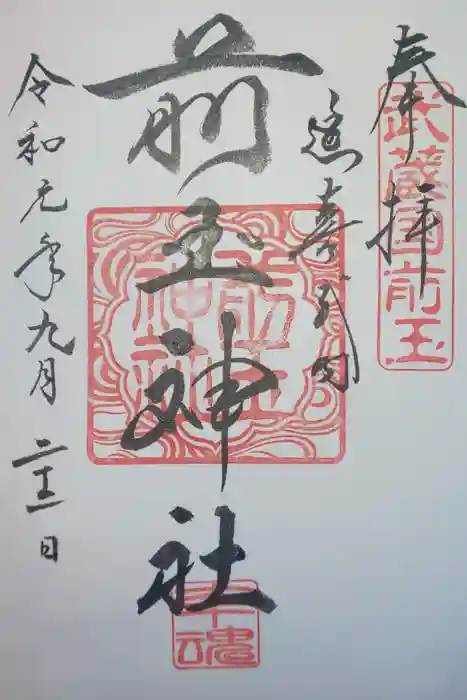 奉拝
武蔵國前玉
延喜式内
前玉神社
前玉
神社
幸魂
令和元年九月二十二日